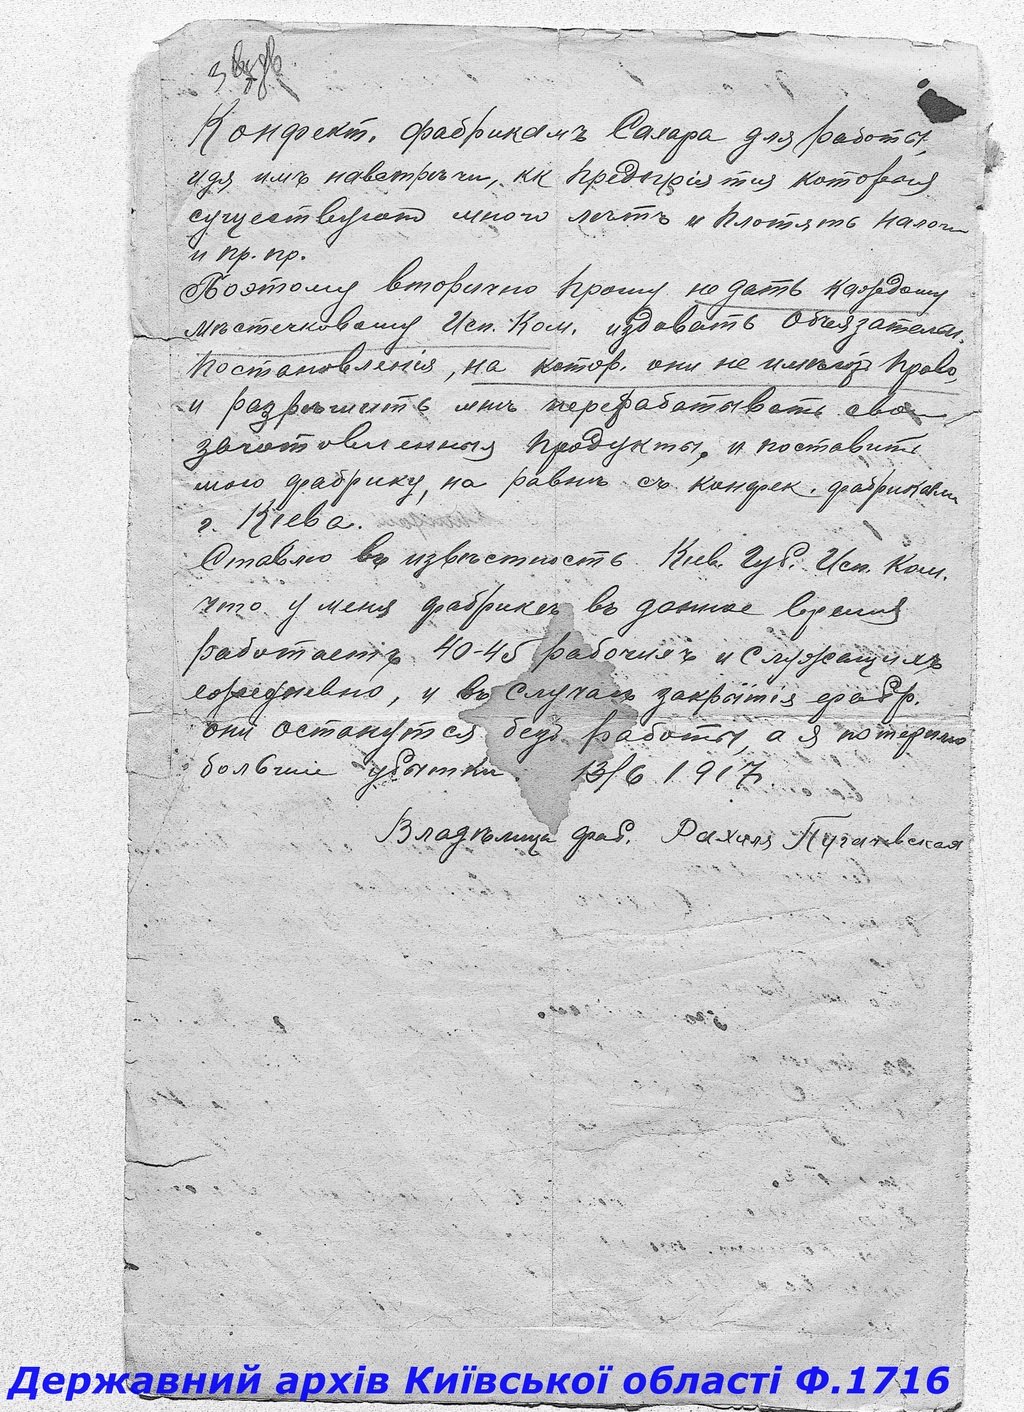 Конфект. фабрикамъ Сахара для работы,
идя имъ навстрѣчи, кк предпріятія которыя
существуютъ много лѣтъ и плотятъ налоги
и пр. пр.
Поэтому вторично прошу не дать каждому
мѣстечковому Исп. Ком. издавать Обязателн.
постановленія, на котор. они не имѣютъ право,
и разрѣшить мнѣ перерабатывать свои
заготовленныя продукты, и поставить
мою фабрику, на равнѣ съ конфек. фабриками
г. Кіева.
Ставлю въ извѣстность Кіев. Губ. Исп. Ком.
что у меня фабрикѣ въ данное время
работаетъ 40-45 рабочихъ и служащихъ
ежедневно, и въ случаѣ закрытія фабр.
они останутся безъ работы, а я потерплю
большіе убытки. 13/6 1917.
Владѣлица фаб. Рахиля
Державний архів Київської області Ф.1716